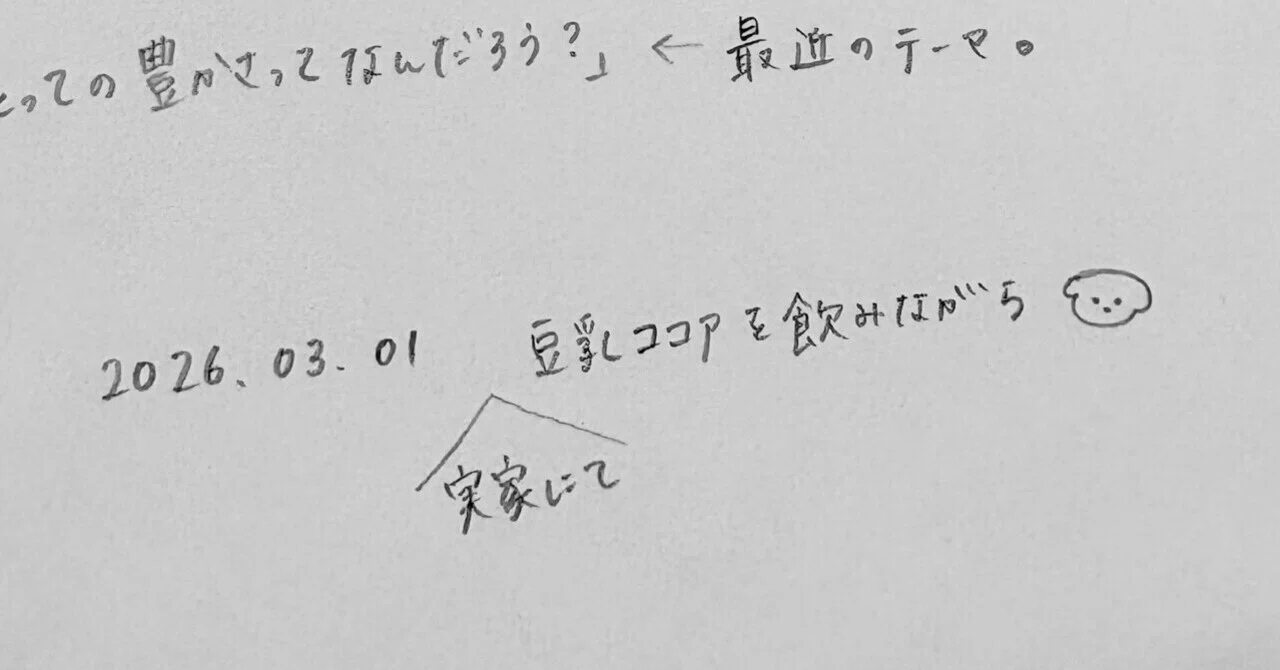 とっての豊かさってなんだろう?」 ← 最近のテーマ。
2026.03.01 豆乳ココアを飲みながら
実家にて